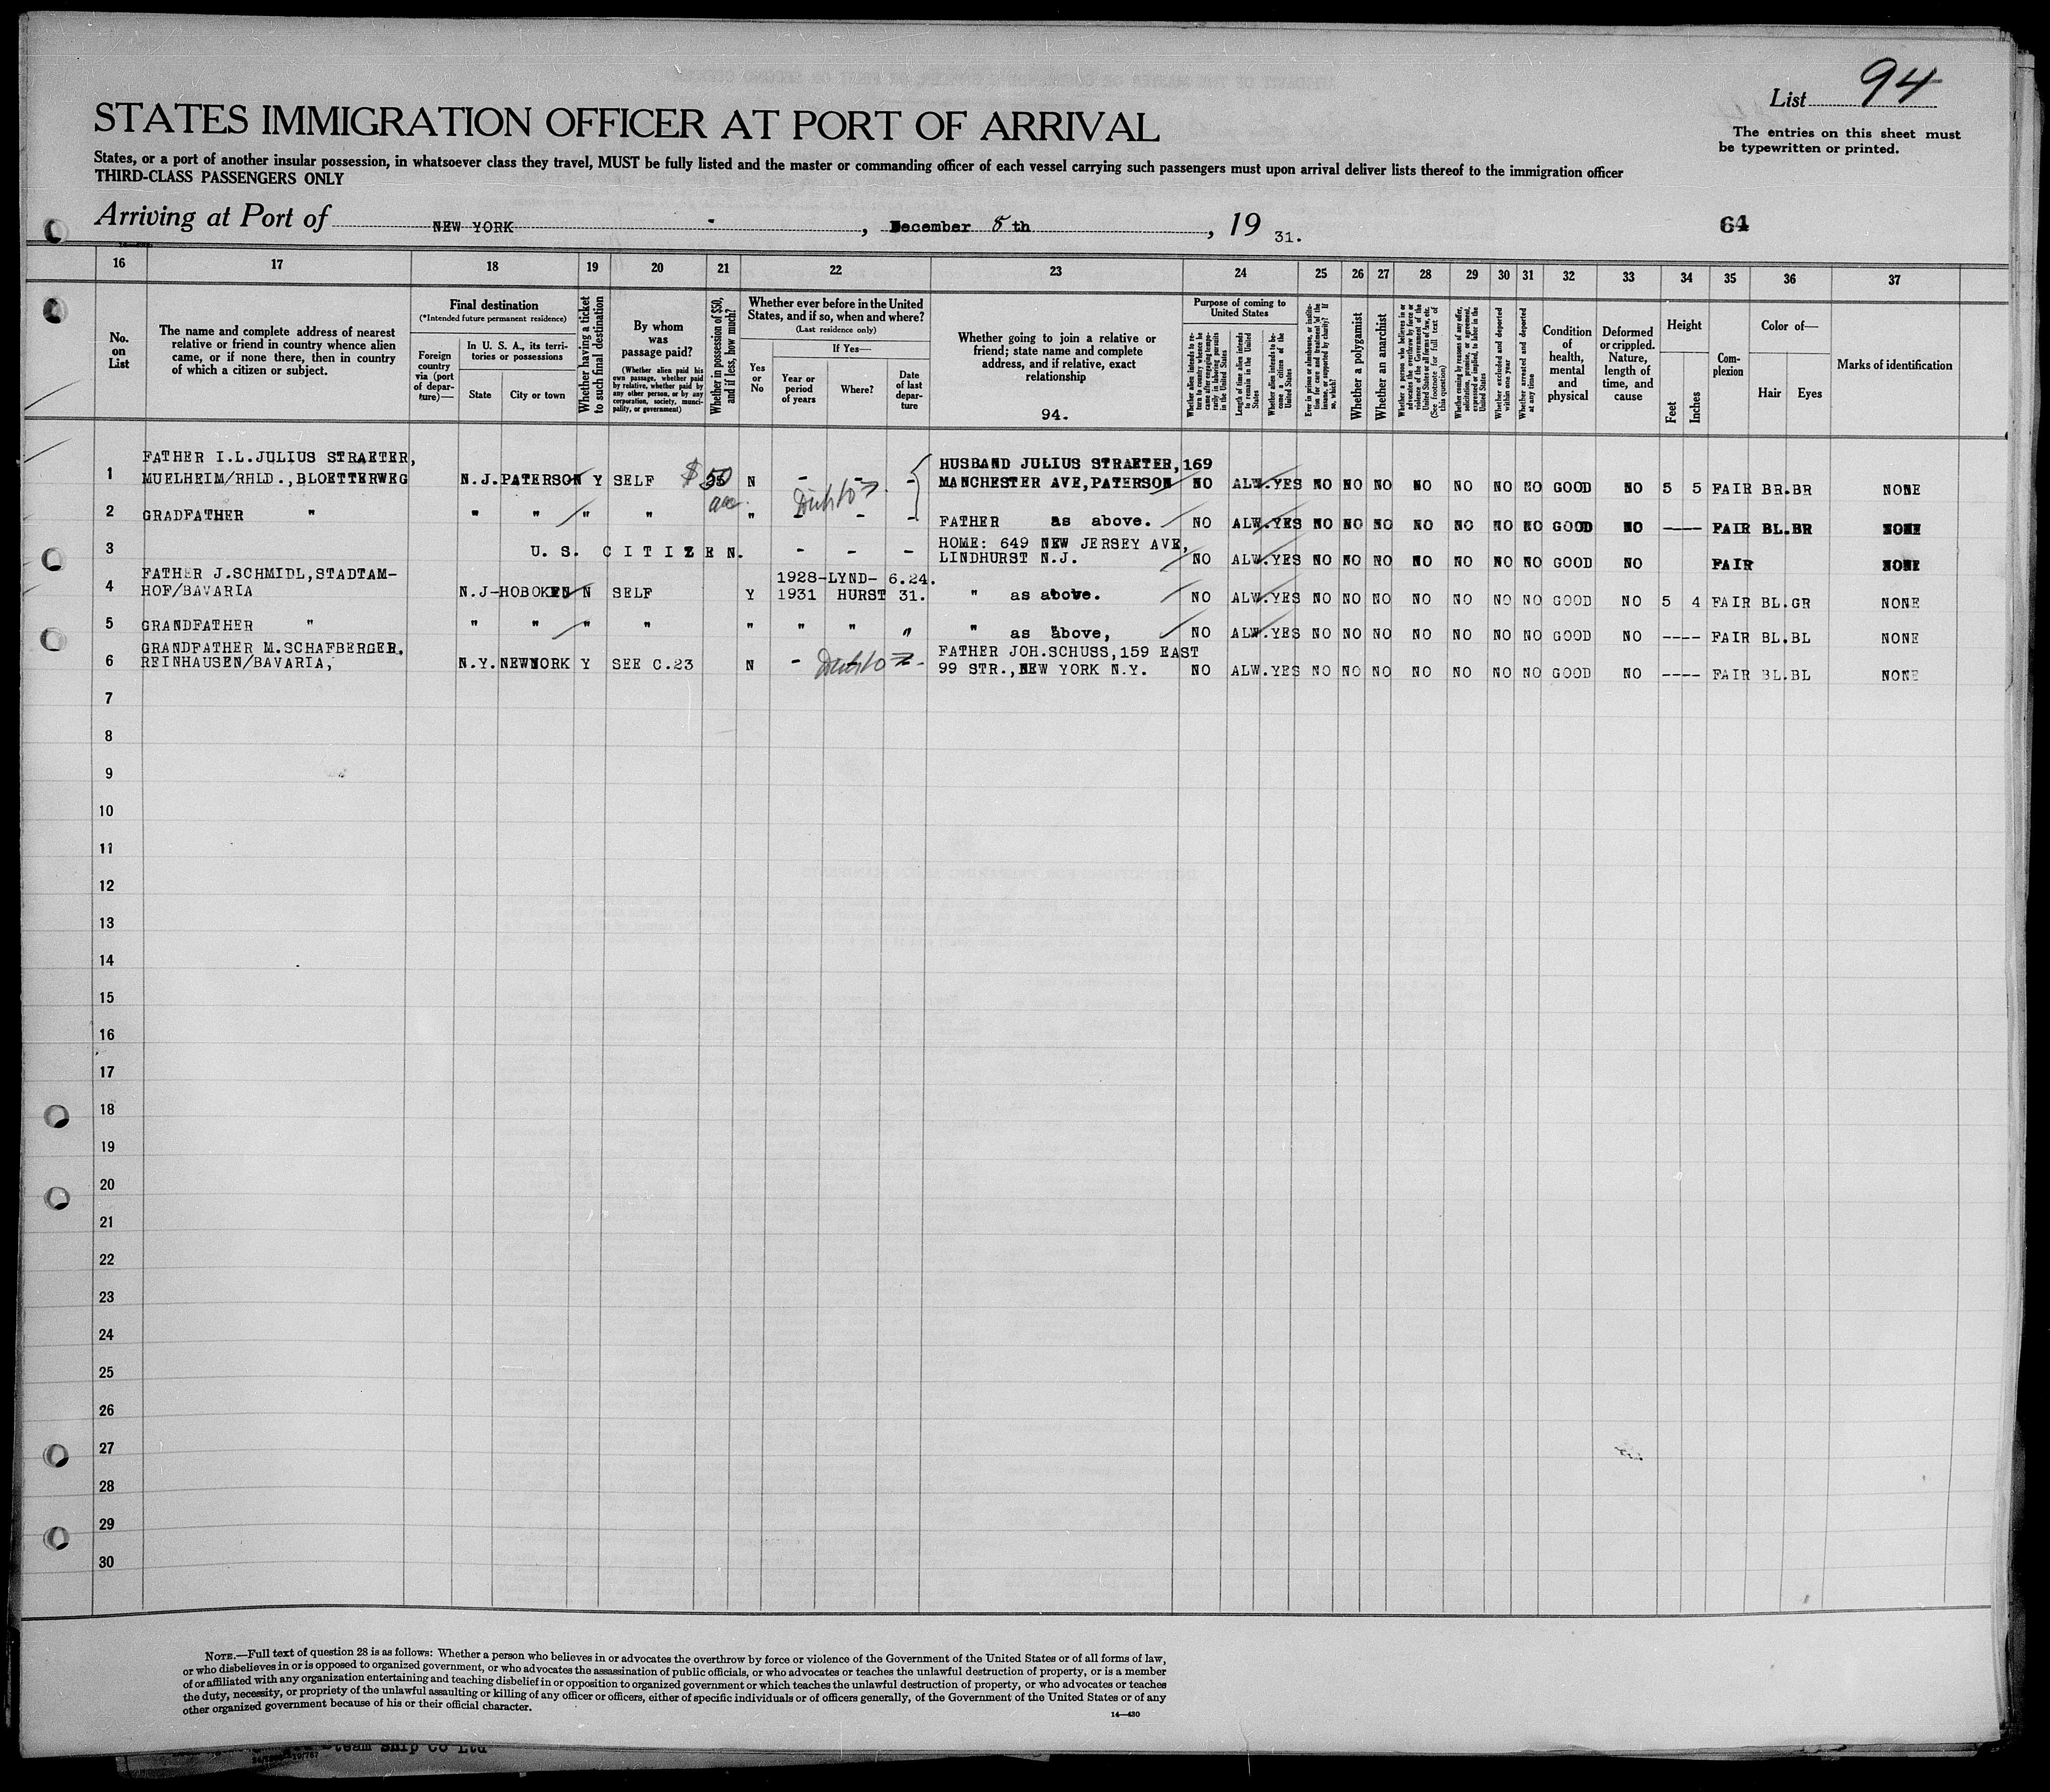 List 94
The entries on this sheet must
be typewritten or printed.
STATES IMMIGRATION OFFICER AT PORT OF ARRIVAL
States, or a port of another insular possession, in whatsoever class they travel, MUST be fully listed and the master or commanding officer of each vessel carrying such passengers must upon arrival deliver lists thereof to the immigration officer
THIRD-CLASS PASSENGERS ONLY
Arriving at Port of NEW YORK, December 8th, 19 31.
64
16 17 18 19 20 21 22 23 24 25 26 27 28 29 30 31 32 33 34 35 36 37
No.
on
List
The name and complete address of nearest
relative or friend in country whence alien
came, or if none there, then in country
of which a citizen or subject.
Final destination
(*Intended future permanent residence)
Foreign
country
via (port
of depar-
ture)—
In U. S. A., its terri-
tories or possessions
State
City or town
Whether having a ticket
to such final destination
By whom
was
passage paid?
(Whether alien paid his
own passage, whether paid
by relative, whether paid by
any other person, or by any
corporation, society, munici-
pality, or government)
Whether in possession of $50,
and if less, how much?
Whether ever before in the United
States, and if so, when and where?
(Last residence only)
Yes
or
No
If Yes—
Year or
period
of years
Where?
Date
of last
depar-
ture
Whether going to join a relative or
friend; state name and complete
address, and if relative, exact
relationship
94.
Purpose of coming to
United States
Whether alien intends to re-
turn to country whence he
came after engaging tempo-
rarily in laboring pursuits
in the United States
Length of time alien intends
to remain in the United
States
Whether alien intends to be-
come a citizen of the
United States
Ever in prison or almshouse, or institu-
tion for care and treatment of the
insane, or supported by charity? If
so, which?
Whether a polygamist
Whether an anarchist
Whether a person who believes in or
advocates the overthrow by force or
violence of the Government of the
United States or all forms of law, etc.
(See footnote for full text of
this question)
Whether coming by reasons of any offer,
solicitation, promise, or agreement,
expressed or implied, to labor in the
United States
Whether excluded and deported
within one year
Whether arrested and deported
at any time
Condition
of
health,
mental
and
physical
Deformed
or crippled.
Nature,
length of
time, and
cause
Height
Feet
Inches
Com-
plexion
Color of—
Hair
Eyes
Marks of identification
FATHER I.L.JULIUS STRAETER, HUSBAND JULIUS STRAETER, 169
1 MUELHEIM/RHLD.,BLOETTERWEG N.J. PATERSON Y SELF $50 N - - - MANCHESTER AVE, PATERSON NO ALW. YES NO NO NO NO NO NO NO GOOD NO 5 5 FAIR BR.BR NONE
2 GRADFATHER " " " " " " - - - FATHER as above. NO ALW. YES NO NO NO NO NO NO NO GOOD NO ---- FAIR BL.BR NONE
HOME: 649 NEW JERSEY AVE,
3 U. S. CITIZEN. - - - LINDHURST N.J. NO ALW. YES NO NO NO NO NO NO NO GOOD NO FAIR NONE
FATHER J.SCHMIDL,STADTAM- 1928- LYND- 6.24.
4 HOF/BAVARIA N.J- HOBOKEN N SELF Y 1931 HURST 31. " as above. NO ALW. YES NO NO NO NO NO NO NO GOOD NO 5 4 FAIR BL.GR NONE
5 GRANDFATHER " " " " " " " " " " as above, NO ALW. YES NO NO NO NO NO NO NO GOOD NO ---- FAIR BL.BL NONE
GRANDFATHER M.SCHAFBERGER, FATHER JOH.SCHUSS, 159 EAST
6 REINHAUSEN/BAVARIA, N.Y. NEWYORK Y SEE C.23 N - - - 99 STR., NEW YORK N.Y. NO ALW. YES NO NO NO NO NO NO NO GOOD NO ---- FAIR BL.BL NONE
7
8
9
10
11
12
13
14
15
16
17
18
19
20
21
22
23
24
25
26
27
28
29
30
NOTE.—Full text of question 28 is as follows: Whether a person who believes in or advocates the overthrow by force or violence of the Government of the United States or of all forms of law,
or who disbelieves in or is opposed to organized government, or who advocates the assassination of public officials, or who advocates or teaches the unlawful destruction of property, or is a member
of or affiliated with any organization entertaining and teaching disbelief in or opposition to organized government or which teaches the unlawful destruction of property, or who advocates or teaches
the duty, necessity, or propriety of the unlawful assaulting or killing of any officer or officers, either of specific individuals or of officers generally, of the Government of the United States or of any
other organized government because of his or their official character.
14—430
Ship Co Ltd